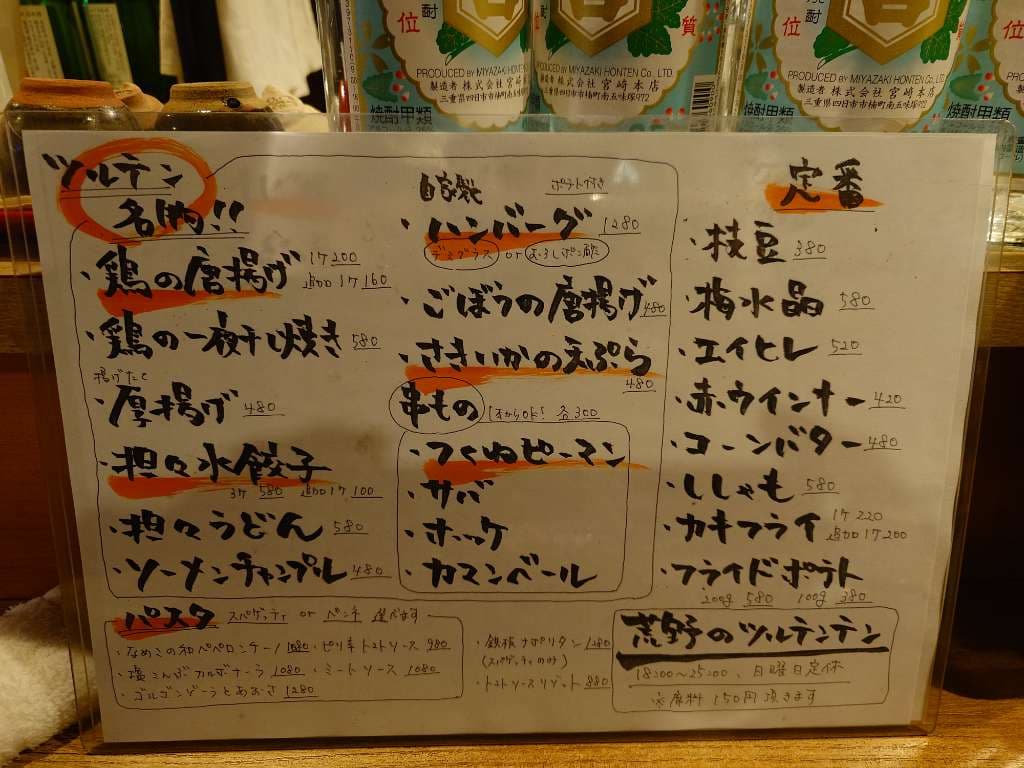 位
焼酎
質
位
焼酎
質
PRODUCED BY MIYAZAKI HONTEN Co., LTD.
製造者 株式会社 宮﨑本店
三重県四日市市楠町南五味塚972
焼酎甲類
PRODUCED BY MIYAZAKI HONTEN Co., LTD.
製造者 株式会社 宮﨑本店
三重県四日市市楠町南五味塚972
焼酎甲類
ツルテン
名物!!
・鶏の唐揚げ 1ケ200
追加1ケ160
・鶏の一夜干し焼き 580
揚げたて
・厚揚げ 480
・担々水餃子
3ケ 580 追加1ケ 100
・担々うどん 580
・ソーメンチャンプル 480
自家製 ポテト付き
・ハンバーグ 1280
デミグラス or おろしポン酢
・ごぼうの唐揚げ 480
・さきいかの天ぷら
480
串もの 1本からOK! 各300
・つくねピーマン
・サバ
・ホッケ
・カマンベール
定番
・枝豆 380
・梅水晶 580
・エイヒレ 520
・赤ウインナー 420
・コーンバター 480
・ししゃも 580
・カキフライ 1ケ220
追加1ケ200
・フライドポテト
200g 580 100g 380
パスタ スパゲッティ or ペンネ 選べます
・なめこの和ペペロンチーノ 1080
・ピリ辛トマトソース 980
・塩こんぶカルボナーラ 1080
・ミートソース 1080
・ゴルゴンゾーラとあおさ 1280
・鉄板ナポリタン 1280
(スパゲッティのみ)
・トマトソースリゾット 880
荒野のツルテンテン
18:00〜25:00、日曜日定休
※席料150円頂きます